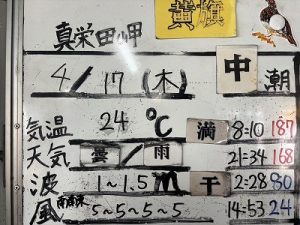 黄旗
真栄田岬
4/17(木) 中潮
気温 24℃ 満 8:10 187
天気 雲/雨 21:34 168
波 1~1.5m 干 2:28 80
風 5~5~5~5 14:53 24